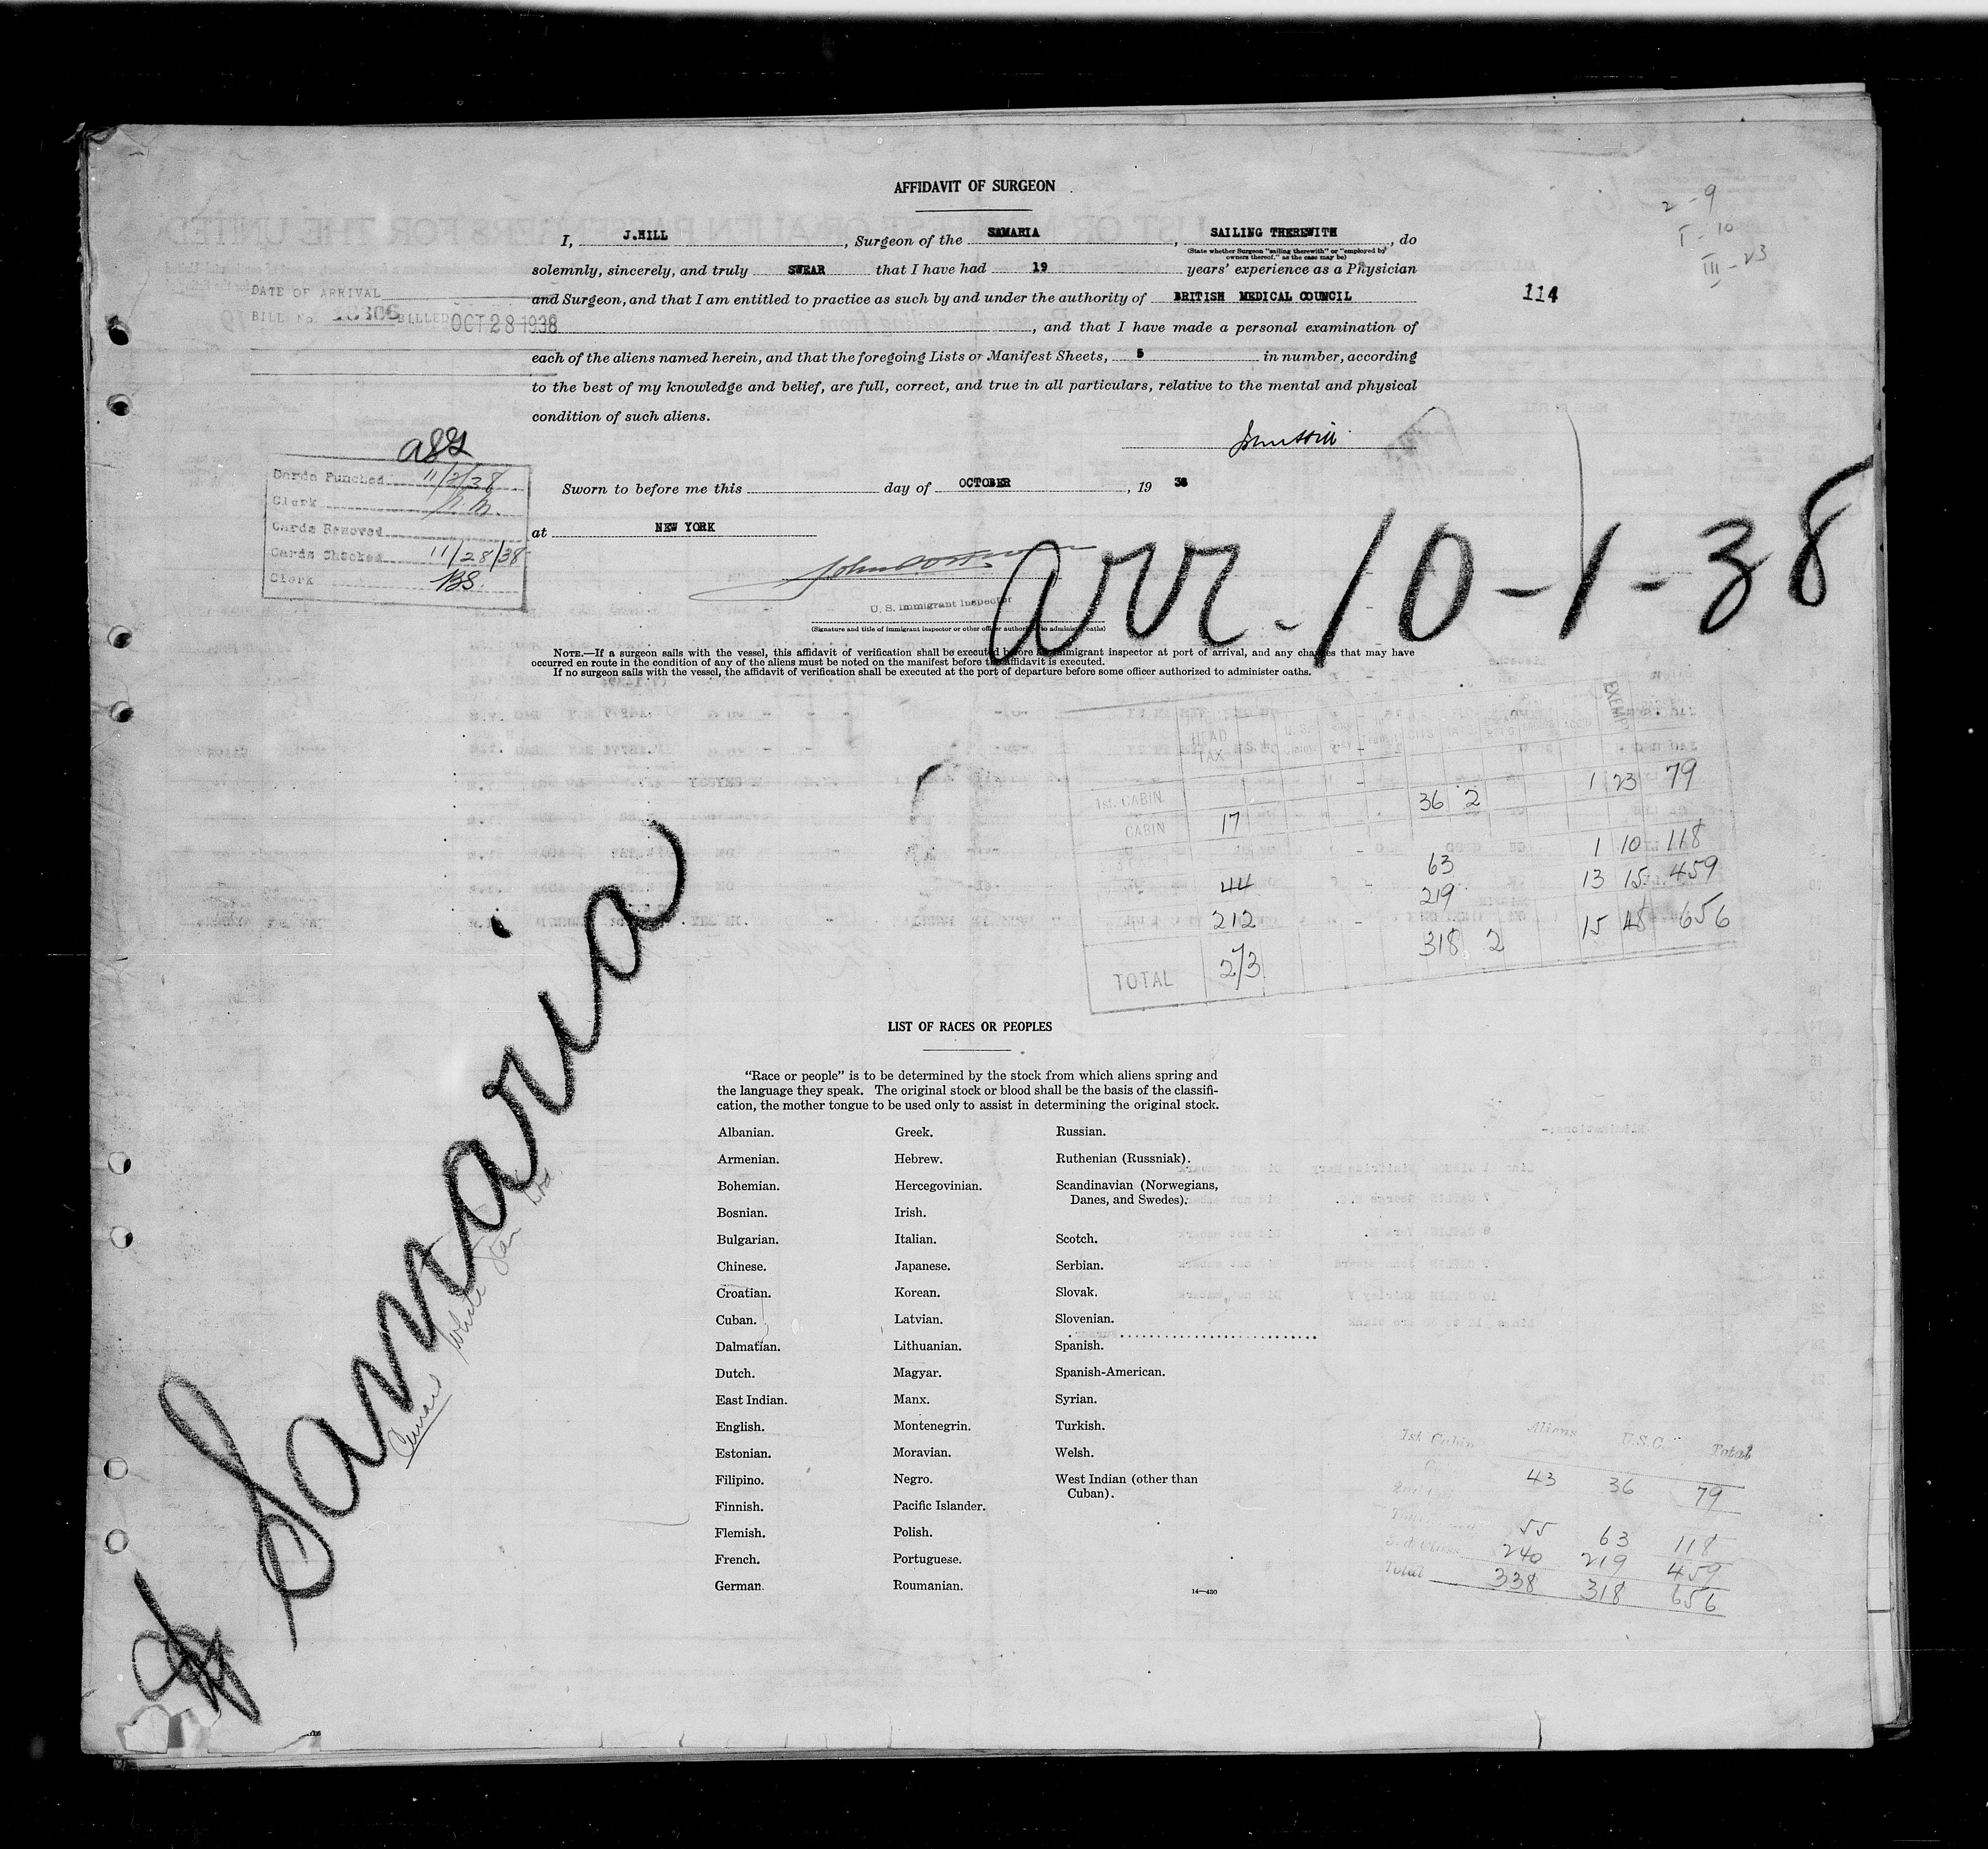 AFFIDAVIT OF SURGEON
2 - 9
I - 10
III - 23
I, J.HILL, Surgeon of the SAMARIA, SAILING THEREWITH, do
(State whether Surgeon "sailing therewith" or "employed by
owners thereof," as the case may be)
solemnly, sincerely, and truly SWEAR that I have had 19 years' experience as a Physician
and Surgeon, and that I am entitled to practice as such by and under the authority of BRITISH MEDICAL COUNCIL
114
, and that I have made a personal examination of
each of the aliens named herein, and that the foregoing Lists or Manifest Sheets, 5 in number, according
to the best of my knowledge and belief, are full, correct, and true in all particulars, relative to the mental and physical
condition of such aliens.
DATE OF ARRIVAL
BILL No. BILLED OCT 28 1938
John Hill
Cards Punched 11/2/38
Clerk
Cards Removed
Cards Checked 11/28/38
Clerk BS.
Sworn to before me this day of OCTOBER, 19 38
at NEW YORK
arr - 10 - 1 - 38
U. S. Immigrant Inspector
(Signature and title of immigrant inspector or other officer authorized to administer oaths)
NOTE.—If a surgeon sails with the vessel, this affidavit of verification shall be executed before an immigrant inspector at port of arrival, and any changes that may have
occurred en route in the condition of any of the aliens must be noted on the manifest before the affidavit is executed.
If no surgeon sails with the vessel, the affidavit of verification shall be executed at the port of departure before some officer authorized to administer oaths.
HEAD TAX U.S. CITS EXEMPT
1st. CABIN
CABIN 17 36 2 1 23 79
44 63 1 10 118
212 219 13 15 459
TOTAL 273 318 2 15 48 656
Samaria
Cunard White Star Ltd
LIST OF RACES OR PEOPLES
"Race or people" is to be determined by the stock from which aliens spring and
the language they speak. The original stock or blood shall be the basis of the classifi-
cation, the mother tongue to be used only to assist in determining the original stock.
Albanian.
Armenian.
Bohemian.
Bosnian.
Bulgarian.
Chinese.
Croatian.
Cuban.
Dalmatian.
Dutch.
East Indian.
English.
Estonian.
Filipino.
Finnish.
Flemish.
French.
German.
Greek.
Hebrew.
Hercegovinian.
Irish.
Italian.
Japanese.
Korean.
Latvian.
Lithuanian.
Magyar.
Manx.
Montenegrin.
Moravian.
Negro.
Pacific Islander.
Polish.
Portuguese.
Roumanian.
Russian.
Ruthenian (Russniak).
Scandinavian (Norwegians,
Danes, and Swedes).
Scotch.
Serbian.
Slovak.
Slovenian.
Spanish.
Spanish-American.
Syrian.
Turkish.
Welsh.
West Indian (other than
Cuban).
14—430
Aliens U.S.C. Total
1st Cabin
43 36 79
55 63 118
3rd Class 240 219 459
Total 338 318 656